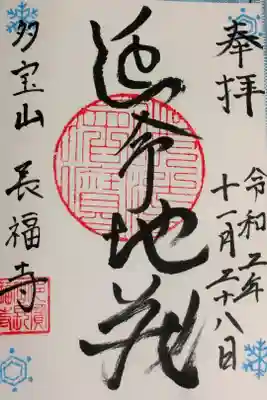 奉拝
令和五年
十一月二十八日
延命地蔵
多宝山
長福寺